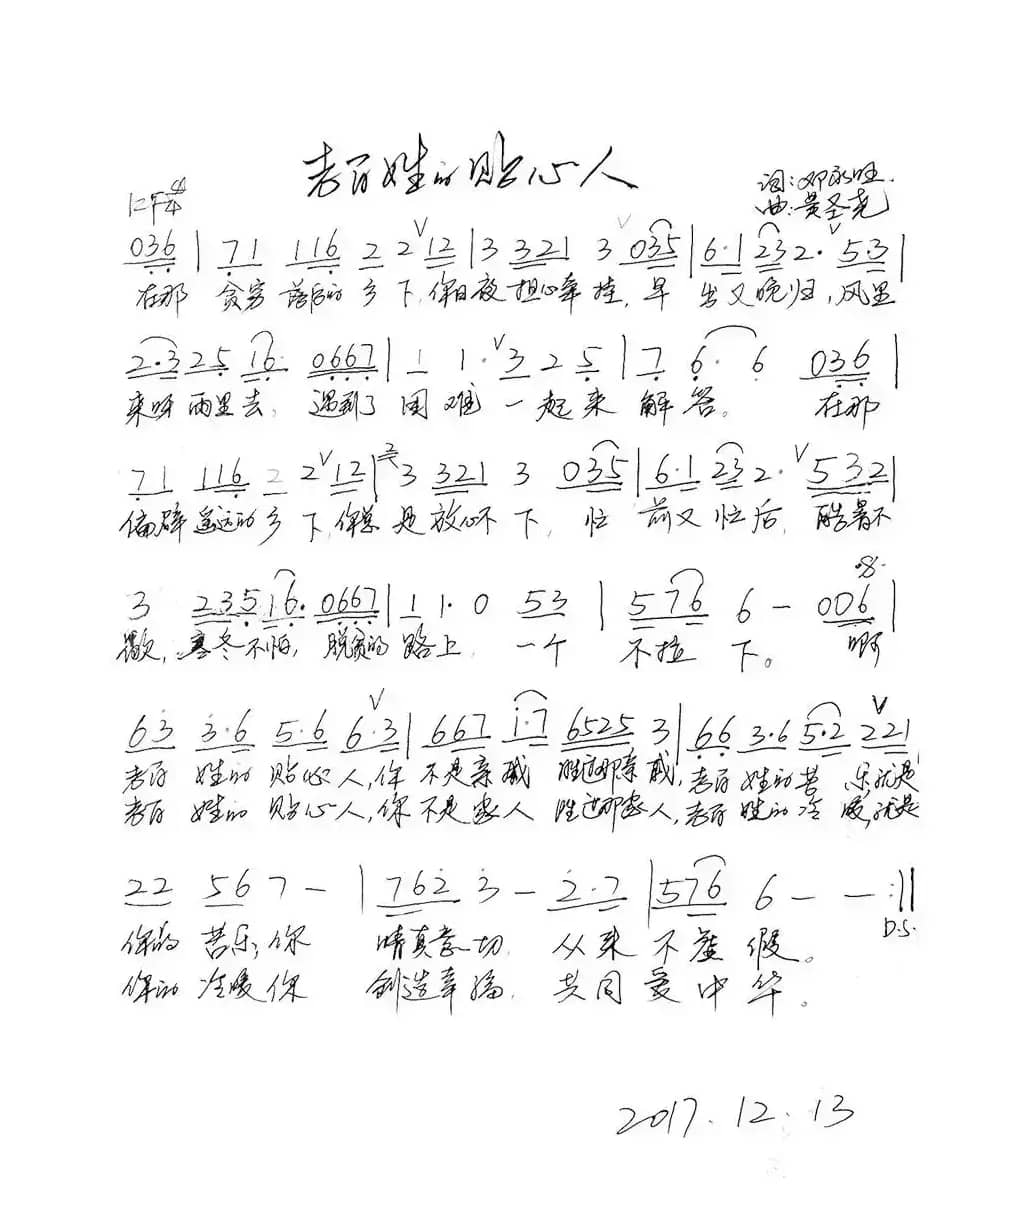 老百姓的贴心人
1=F 4/4
词:邓永旺.
曲:黄圣尧
036 | 71 116 2 2 12 | 3 321 3 035 | 6·1 232· 5·3 |
在那 贫穷 落后的 乡下,你日夜担心牵挂,早出又晚归,风里
2·325 16· 0667 | 1 1· 3 2 5 | 7 6· 6 036 |
来呀雨里去, 遇到了困难一起来解答。 在那
71 116 2 2 12 | 3 321 3 035 | 6·1 23 2· 532 |
偏僻遥远的乡下,你总是放心不下,忙前又忙后,酷暑不
3 235 16· 0667 | 1 1· 0 53 | 576 6 - 006 |
歇,寒冬不怕,脱贫的路上,一个不拉下。 啊
63 3·6 5·6 6·3 | 667 1·7 6525 3 | 66 3·6 5·2 221
老百姓的贴心人,你不是亲戚胜过那亲戚,老百姓的苦乐就是
老百姓的贴心人,你不是家人胜过那家人,老百姓的冷暖,就是
22 56 7 - | 762 3 - 2·7 | 576 6 - - :||
D.S.
你的苦乐,你 情真意切, 从来不虚假。
你的冷暖你 创造幸福, 共同爱中华。
2017.12.13